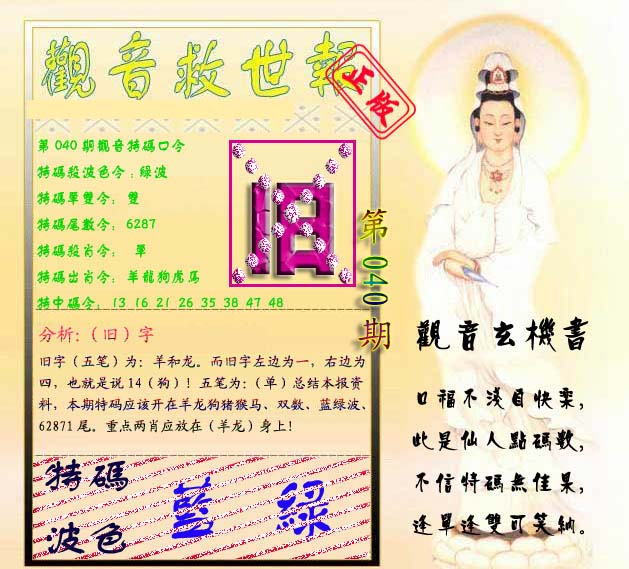 觀音救世報
正版
第 040 期觀音特碼口令
特碼殺波色令：綠波
特碼單雙令： 雙
特碼尾數令： 6287
特碼殺肖令： 單
特碼出肖令： 羊龍狗虎馬
特中碼令： 13 16 21 26 35 38 47 48
旧
第 040 期
分析:（旧）字
旧字（五笔）为: 羊和龙。而旧字左边为一，右边为
四，也就是说14（狗）！五笔为:（单）总结本报资
料，本期特码应该开在羊龙狗猪猴马、双数、蓝绿波、
62871 尾。重点两肖应放在（羊龙）身上!
特碼
波色
藍 綠
觀音玄機書
口福不淺自快樂,
此是仙人點碼數,
不信特碼無佳果,
逢單逢雙可笑納。